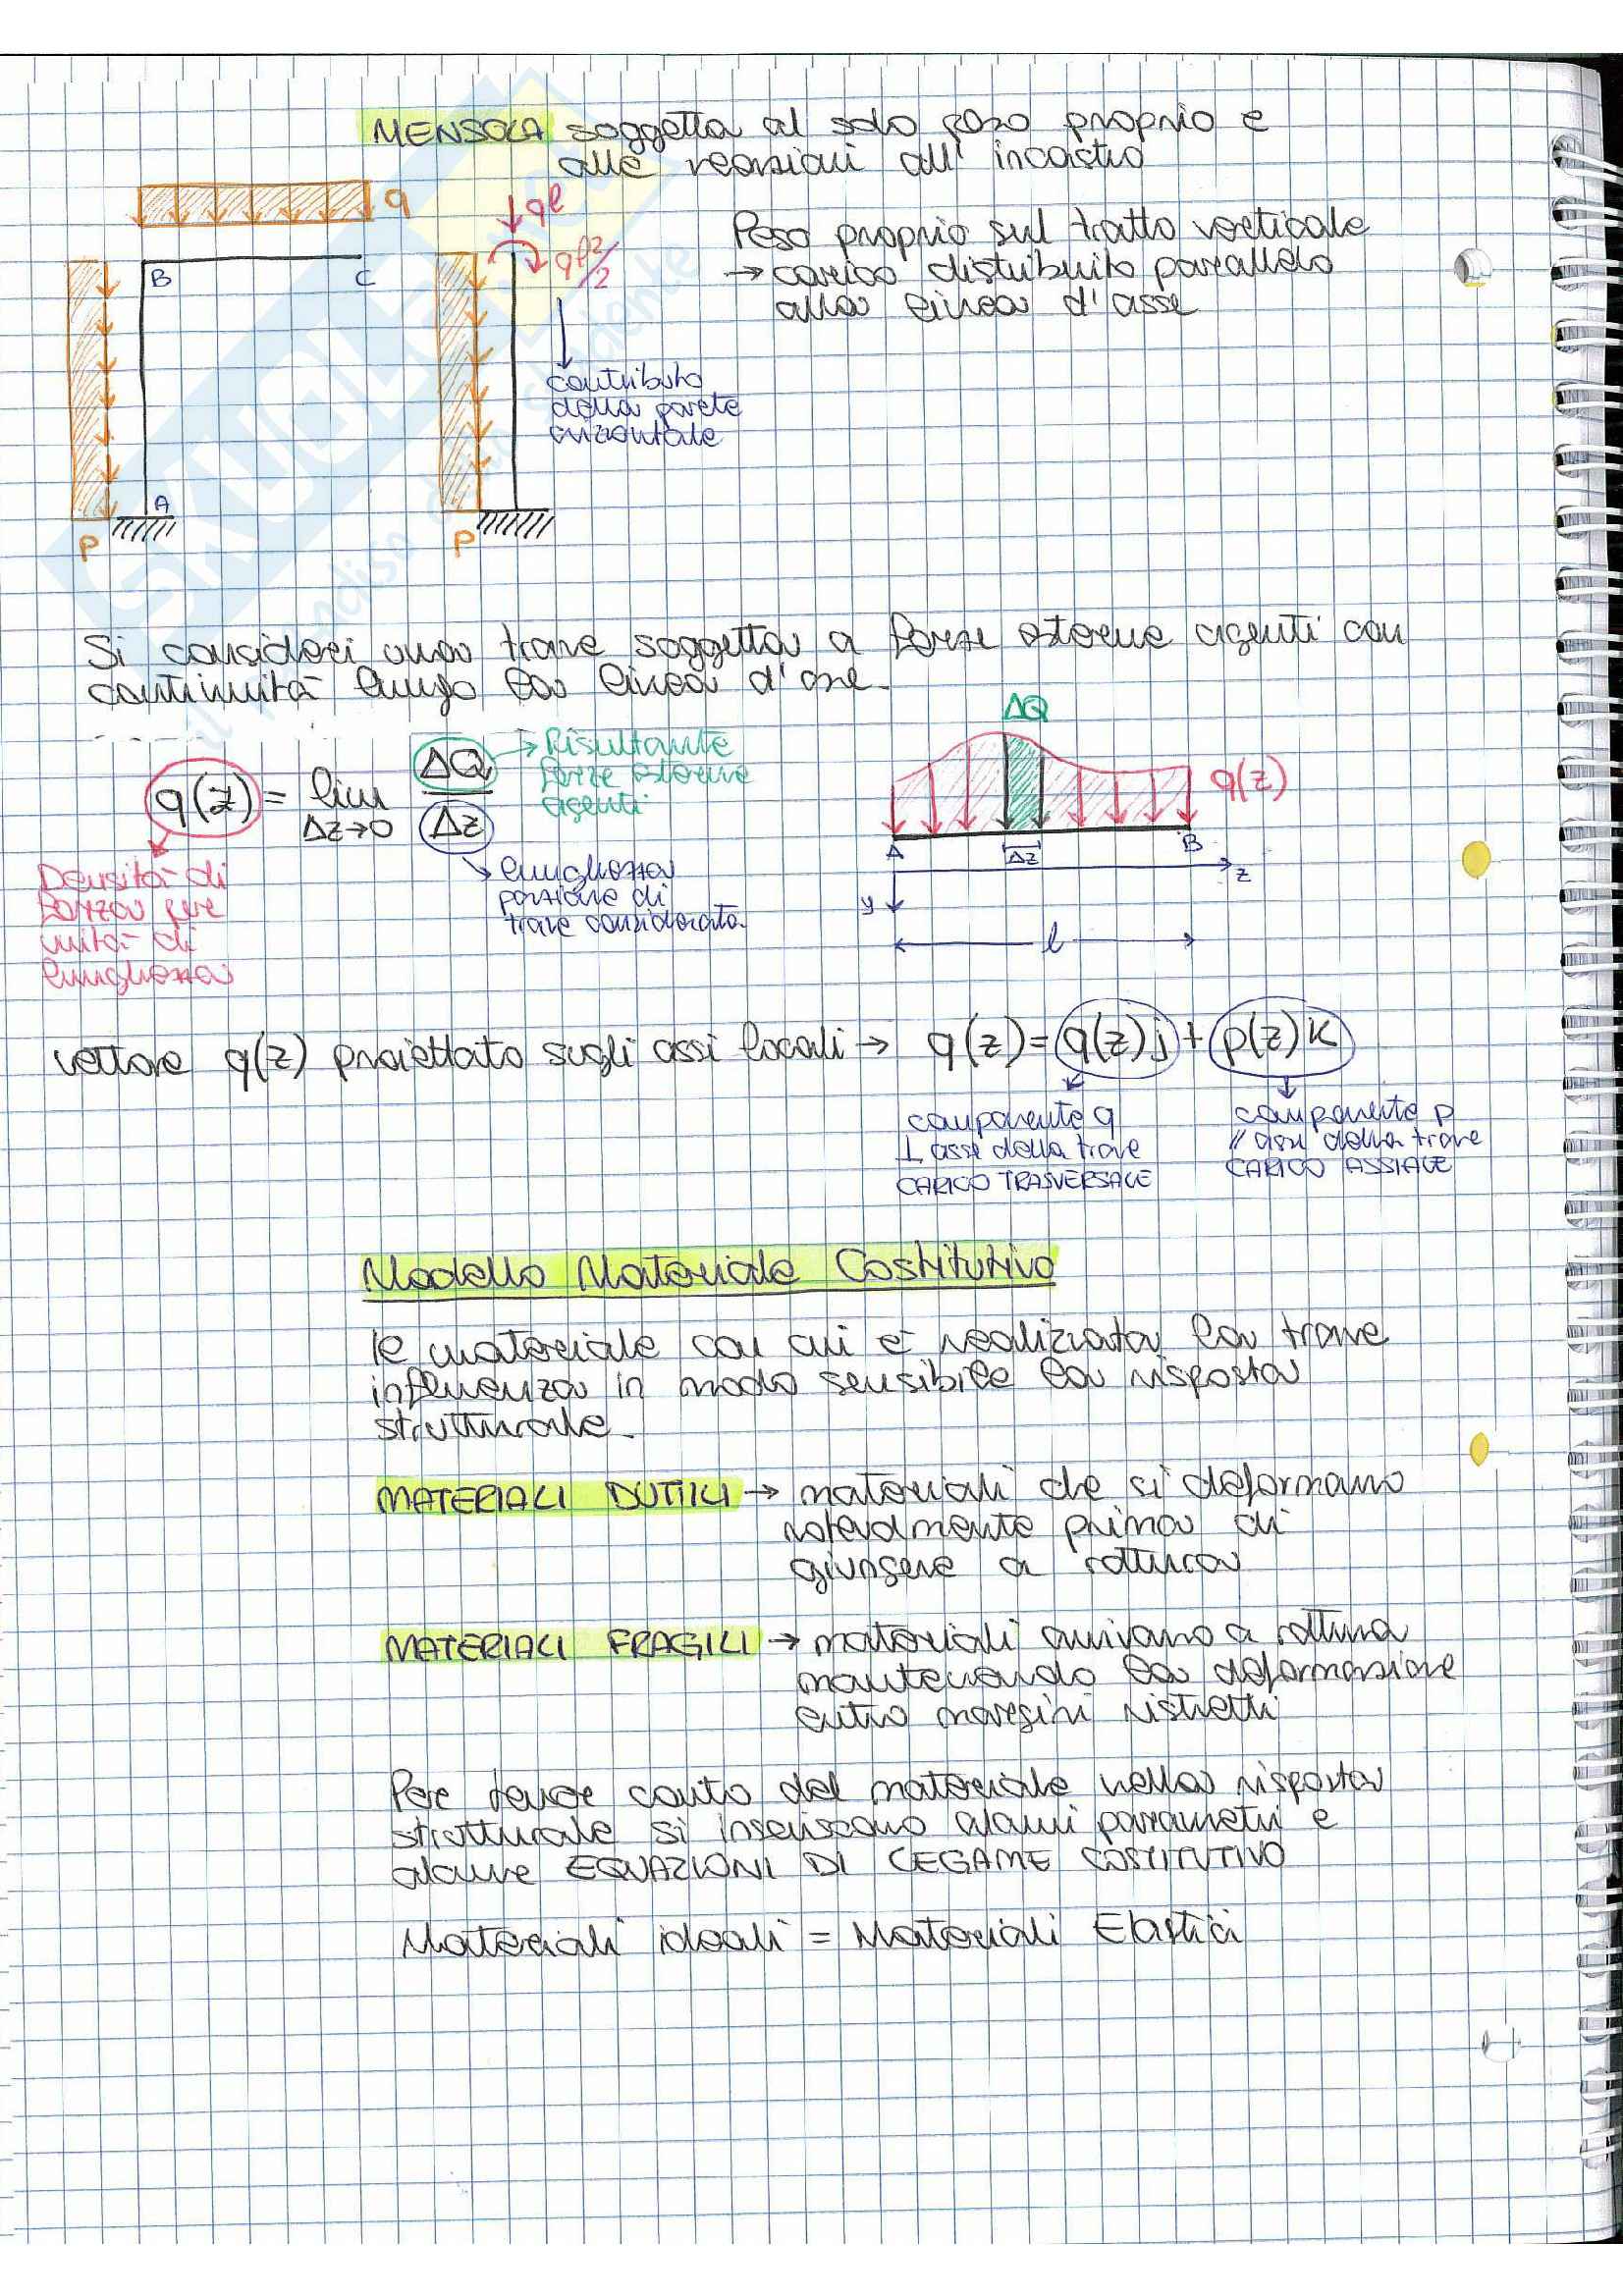 MENSOLA soggetta al solo peso proprio e
alle reazioni all' incastro
q
ql
ql²/2
Peso proprio sul tratto verticale
→ carico distribuito parallelo
alla linea d'asse
B
C
contributo
della parete
orizzontale
A
P
P
Si consideri una trave soggetta a forze esterne agenti con
continuità lungo la linea d'asse.
ΔQ
q(z) = lim ΔQ/Δz
Δz→0
→ Risultante
forze esterne
agenti
q(z)
A
Δz
B
z
y
l
Densità di
forza per
unità di
lunghezza
lunghezza
porzione di
trave considerata
vettore q(z) proiettato sugli assi locali → q(z) = q(z)j + p(z)k
componente q
⊥ asse della trave
CARICO TRASVERSALE
componente p
// asse della trave
CARICO ASSIALE
Modello Materiale Costitutivo
Il materiale con cui è realizzata la trave
influenza in modo sensibile la risposta
strutturale.
MATERIALI DUTTILI → materiali che si deformano
notevolmente prima di
giungere a rottura
MATERIALI FRAGILI → materiali arrivano a rottura
mantenendo la deformazione
entro margini ristretti
Per tener conto del materiale nella risposta
strutturale si inseriscono alcuni parametri e
alcune EQUAZIONI DI LEGAME COSTITUTIVO
Materiali ideali = Materiali Elastici